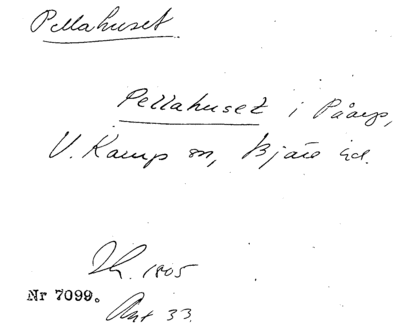 Pellahuset.
Pellahuset i Påarp,
V. Karup sn, Bjäre hd.
Th. 1805
Nr 7099.
Ant 33.